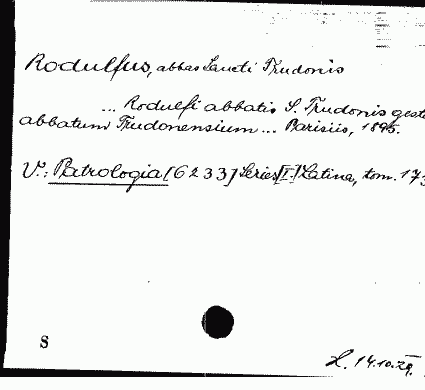 Rodulfus, abbas Sancti Trudonis
... Rodulfi abbatis S. Trudonis gesta
abbatum Trudonensium ... Parisiis, 1895.
V.: Patrologia [6233] Series [I.] Latina, tom. 173
S
L. 14.10.29.